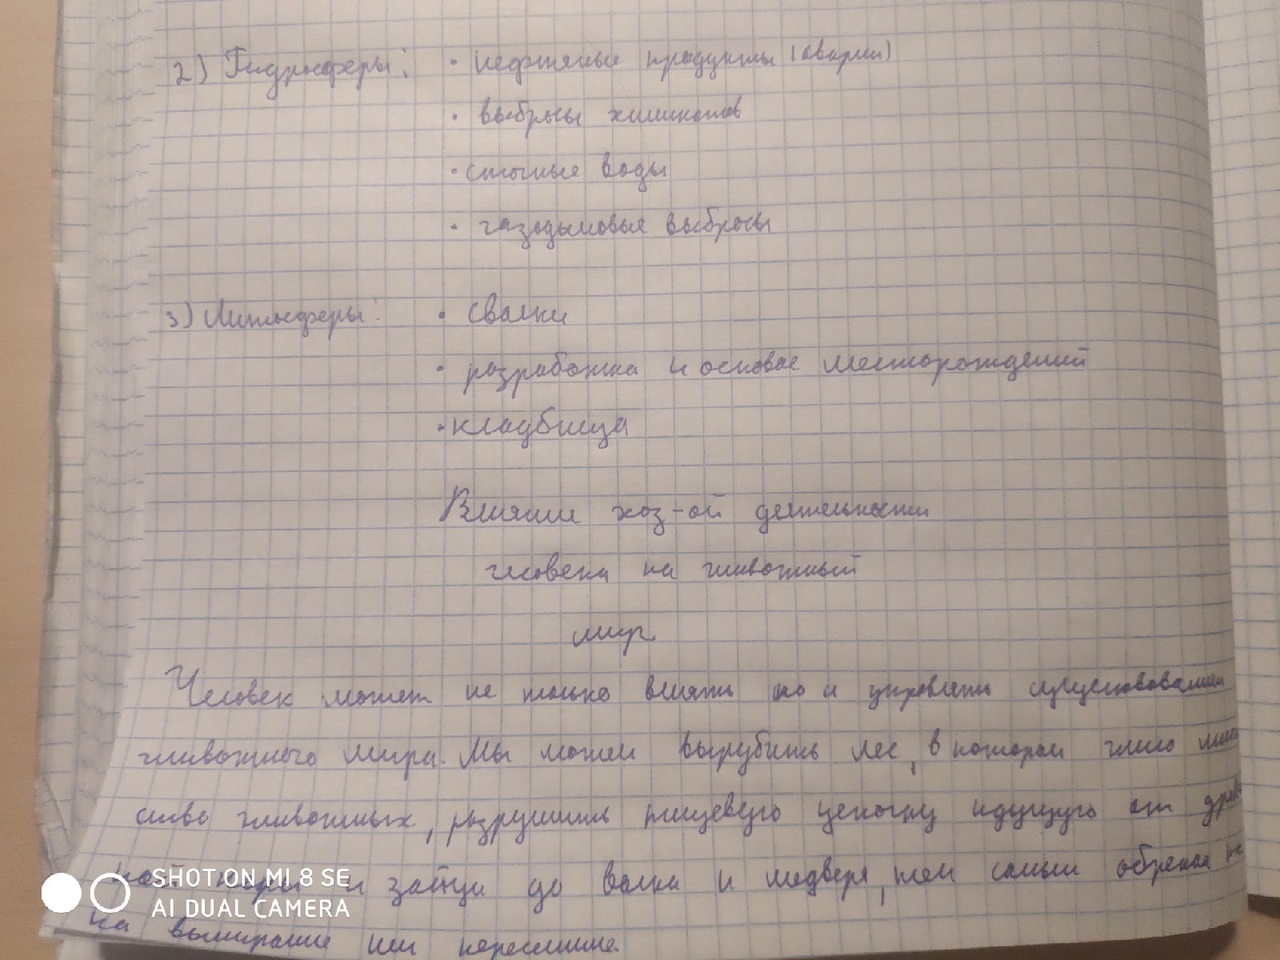 2) Гидросферы: • нефтяные продукты (аварии)
• выбросы химикатов
• сточные воды
• газодымовые выбросы
3) Литосферы: • свалки
• разработка и освоение месторождений
• кладбища
Влияние хоз-ой деятельности
человека на животный
мир
Человек может не только влиять но и управлять существованием
животного мира. Мы можем вырубить лес, в котором жило множе
ство животных, разрушить пищевую цепочку идущую от
коры и зайца до волка и медведя, тем самым обрекая
на вымирание или переселение.
SHOT ON MI 8 SE
AI DUAL CAMERA